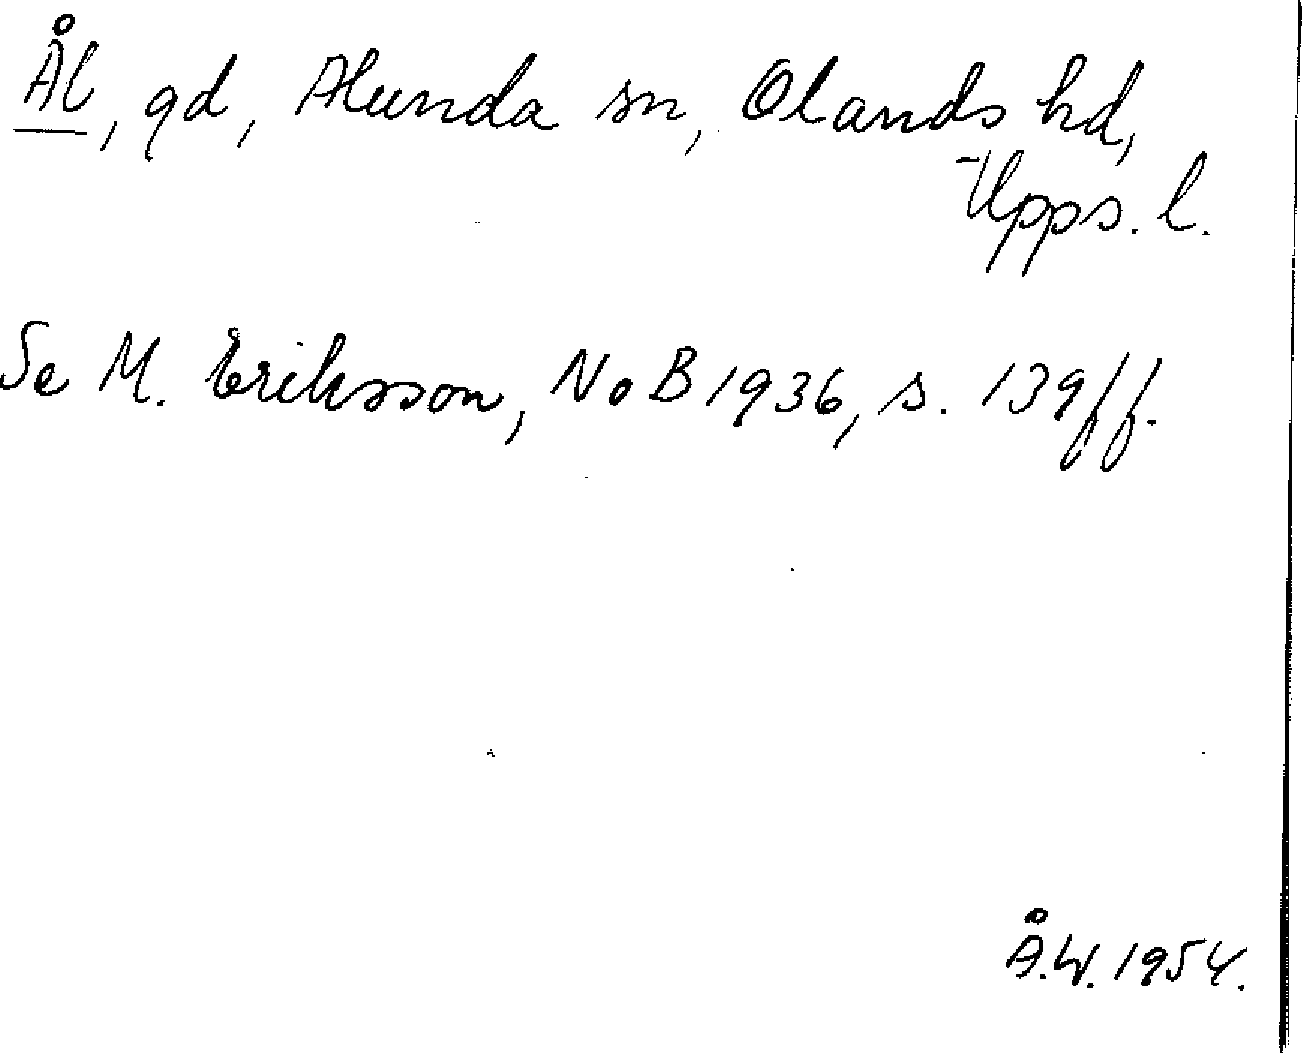 Ål, gd, Alunda sn, Olands hd,
Upps. l.
Se M. Eriksson, NoB 1936, s. 139 ff.
Å.W. 1954.